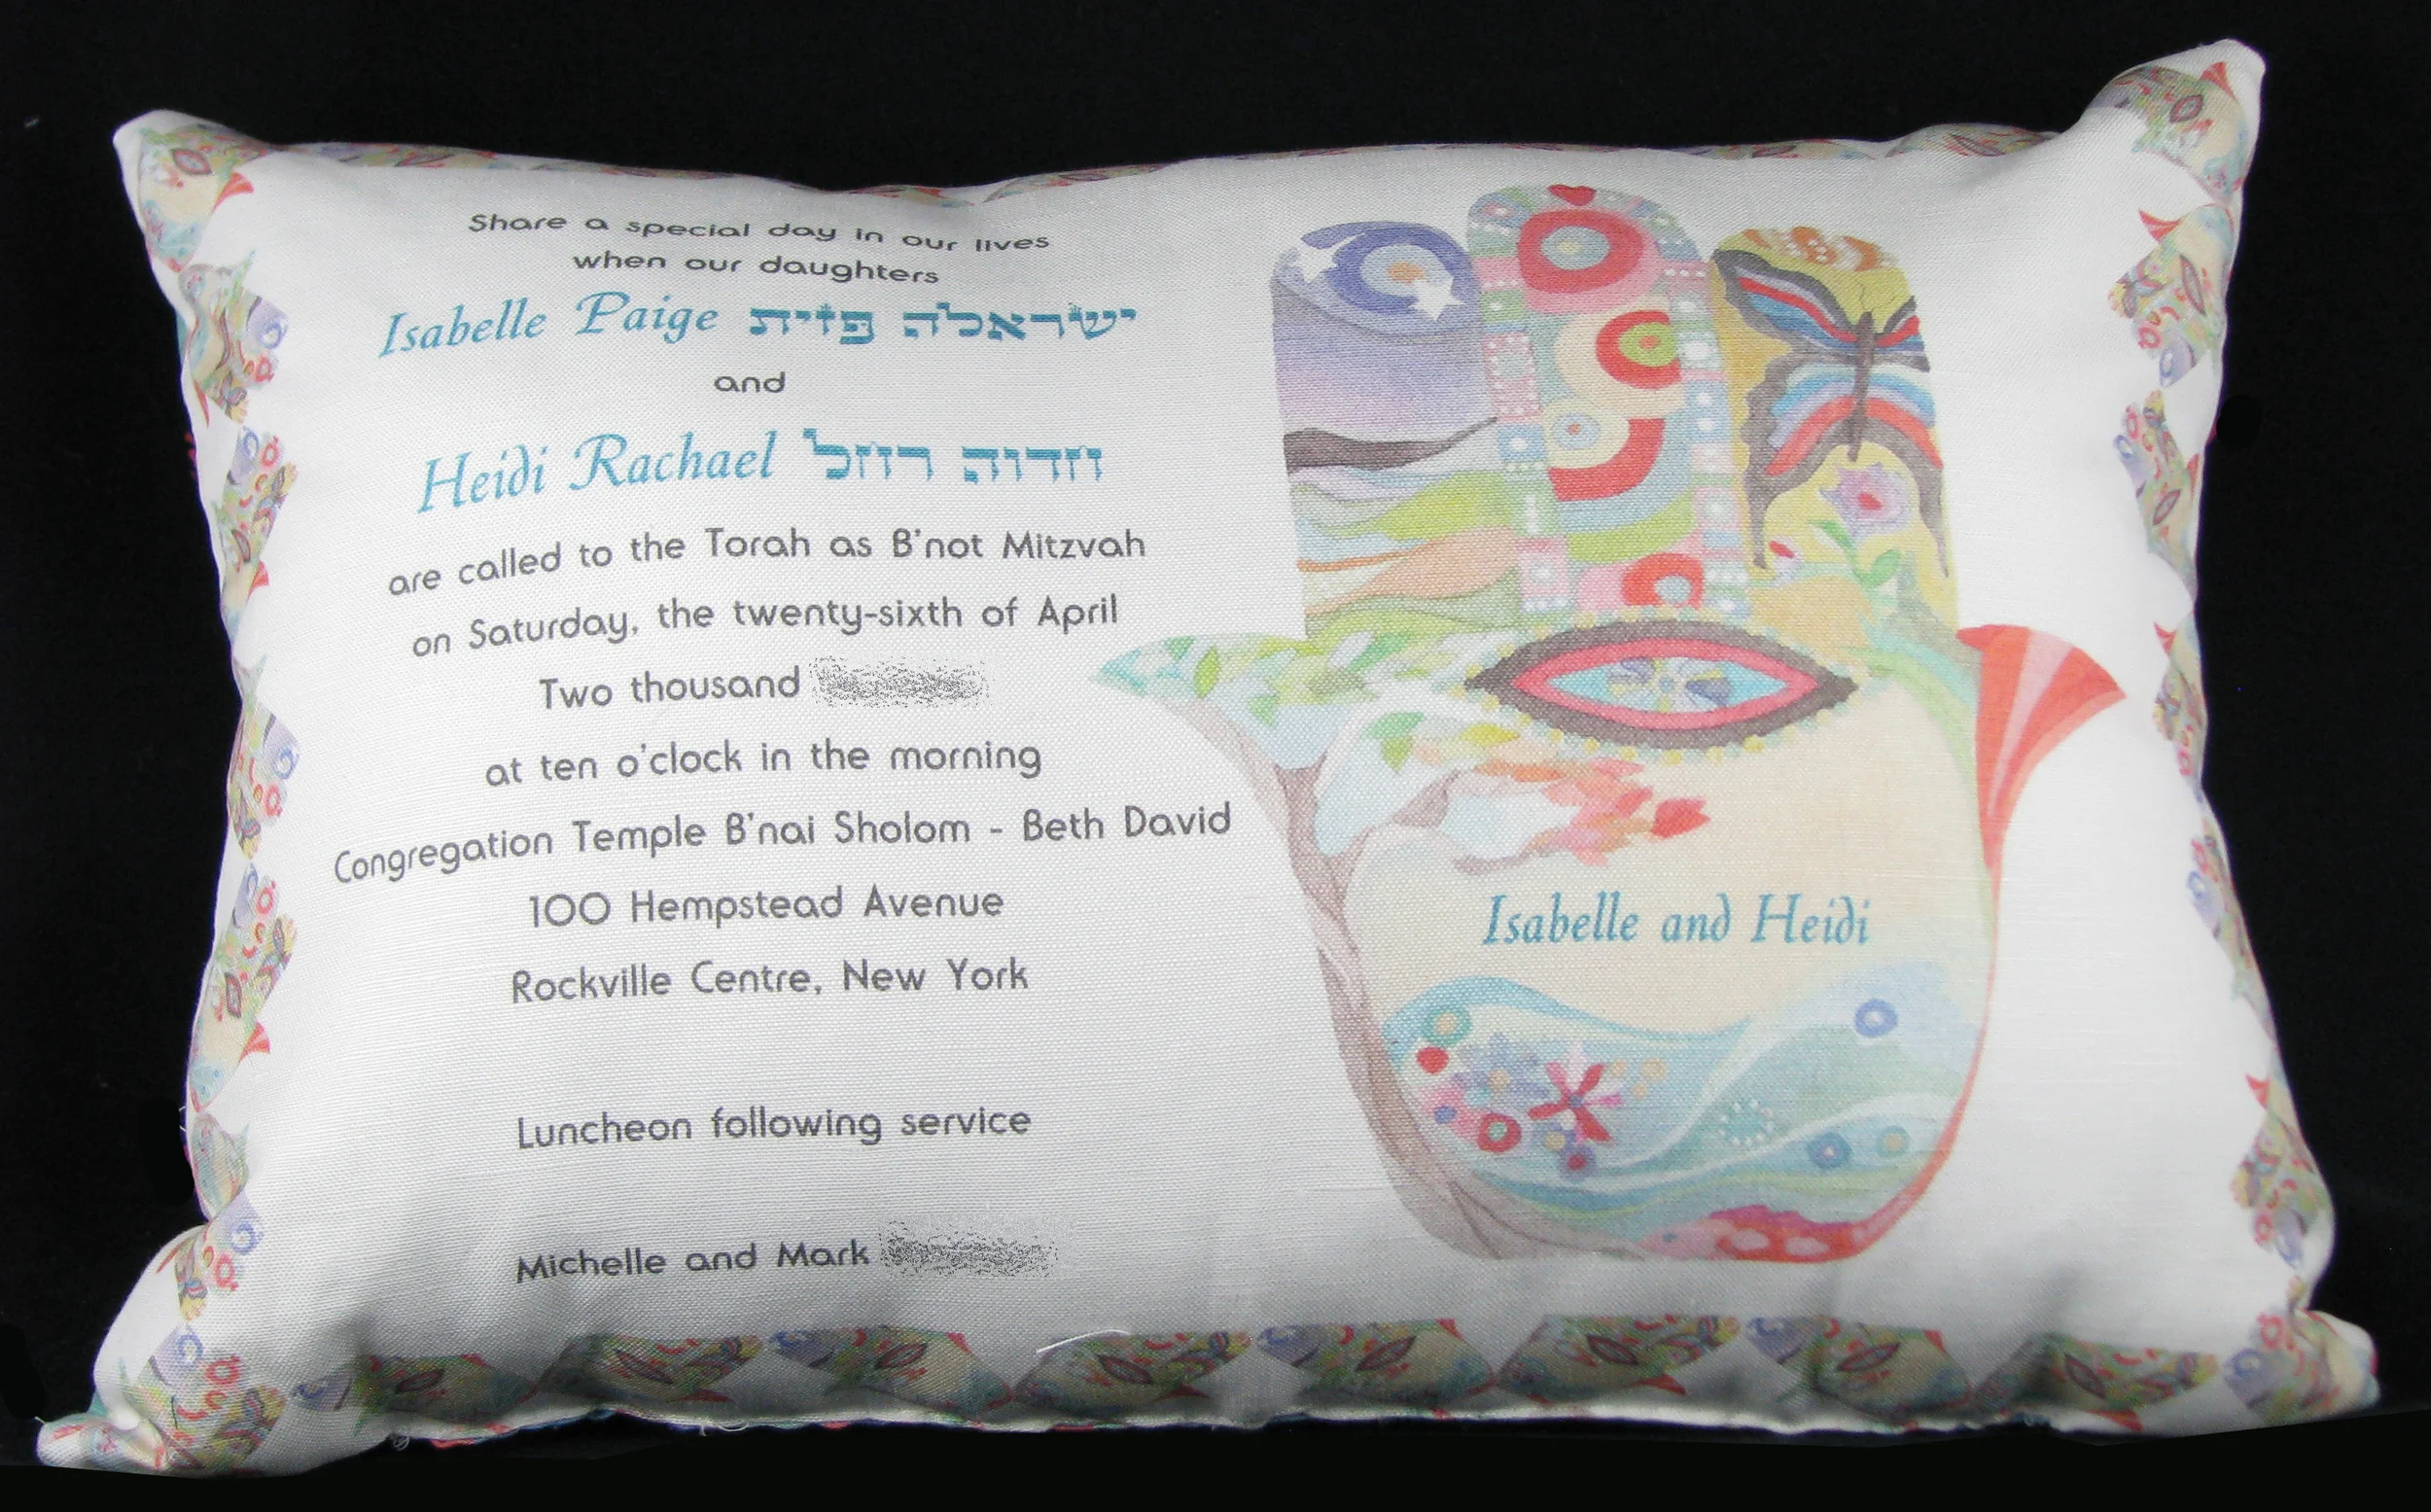 Share a special day in our lives
when our daughters
Isabelle Paige ישראלה פזית
and
Heidi Rachael חדוה רחל
are called to the Torah as B'not Mitzvah
on Saturday, the twenty-sixth of April
Two thousand
at ten o'clock in the morning
Congregation Temple B'nai Sholom - Beth David
100 Hempstead Avenue
Rockville Centre, New York
Luncheon following service
Michelle and Mark
Isabelle and Heidi